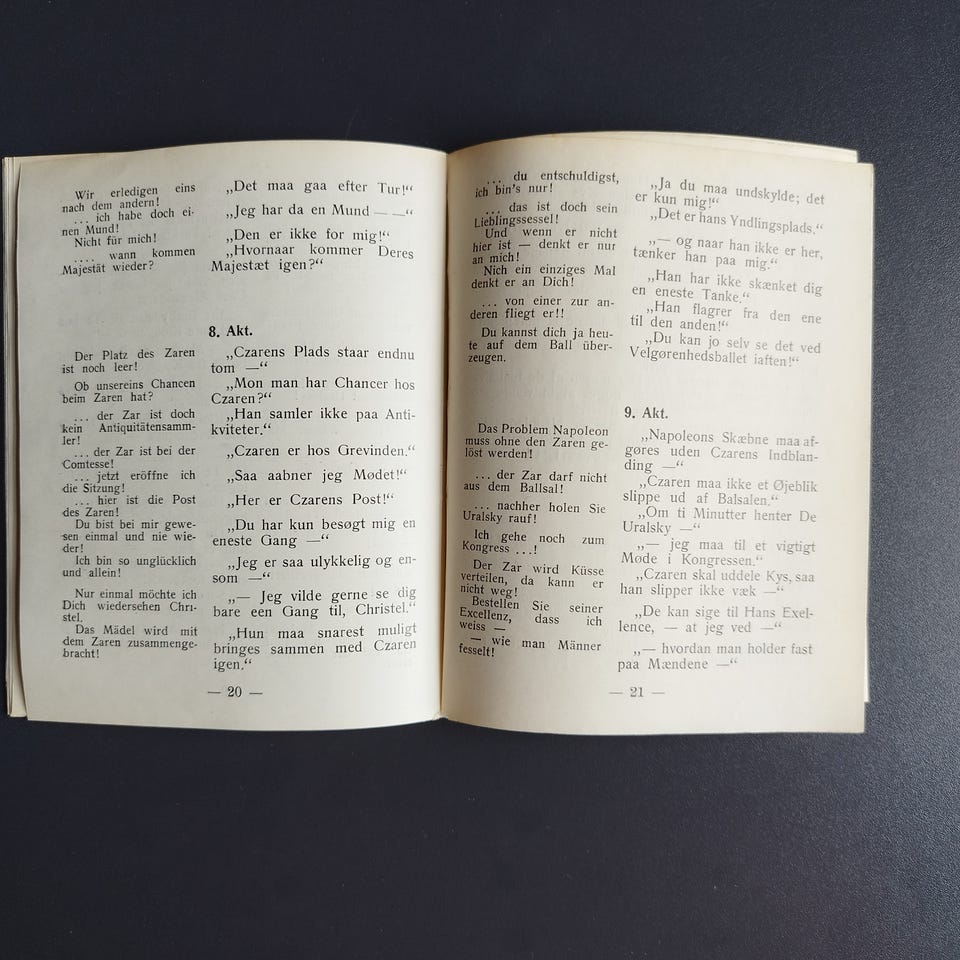 Wir erledigen eins
nach dem andern!
... ich habe doch ei-
nen Mund!
Nicht für mich!
.... wann kommen
Majestät wieder?
„Det maa gaa efter Tur!“
„Jeg har da en Mund — —“
„Den er ikke for mig!“
„Hvornaar kommer Deres
Majestæt igen?“
8. Akt.
Der Platz des Zaren
ist noch leer!
Ob unsereins Chancen
beim Zaren hat?
... der Zar ist doch
kein Antiquitätensamm-
ler!
... der Zar ist bei der
Comtesse!
... jetzt eröffne ich
die Sitzung!
... hier ist die Post
des Zaren!
Du bist bei mir gewe-
sen einmal und nie wie-
der!
Ich bin so unglücklich
und allein!
Nur einmal möchte ich
Dich wiedersehen Chri-
stel.
Das Mädel wird mit
dem Zaren zusammenge-
bracht!
„Czarens Plads staar endnu
tom —“
„Mon man har Chancer hos
Czaren?“
„Han samler ikke paa Anti-
kviteter.“
„Czaren er hos Grevinden.“
„Saa aabner jeg Mødet!“
„Her er Czarens Post!“
„Du har kun besøgt mig en
eneste Gang —“
„Jeg er saa ulykkelig og en-
som —“
„— Jeg vilde gerne se dig
bare een Gang til, Christel.“
„Hun maa snarest muligt
bringes sammen med Czaren
igen.“
— 20 —
... du entschuldigst,
ich bin's nur!
... das ist doch sein
Lieblingssessel!
Und wenn er nicht
hier ist — denkt er nur
an mich!
Nich ein einziges Mal
denkt er an Dich!
... von einer zur an-
deren fliegt er!!
Du kannst dich ja heu-
te auf dem Ball über-
zeugen.
„Ja du maa undskylde; det
er kun mig!“
„Det er hans Yndlingsplads.“
„— og naar han ikke er her,
tænker han paa mig.“
„Han har ikke skænket dig
en eneste Tanke.“
„Han flagrer fra den ene
til den anden!“
„Du kan jo selv se det ved
Velgørenhedsballet iaften!“
9. Akt.
Das Problem Napoleon
muss ohne den Zaren ge-
löst werden!
... der Zar darf nicht
aus dem Ballsal!
... nachher holen Sie
Uralsky rauf!
Ich gehe noch zum
Kongress ...!
Der Zar wird Küsse
verteilen, da kann er
nicht weg!
Bestellen Sie seiner
Excellenz, dass ich
weiss —
— wie man Männer
fesselt!
„Napoleons Skæbne maa af-
gøres uden Czarens Indblan-
ding —“
„Czaren maa ikke et Øjeblik
slippe ud af Balsalen.“
„Om ti Minutter henter De
Uralsky —“
„— jeg maa til et vigtigt
Møde i Kongressen.“
„Czaren skal uddele Kys, saa
han slipper ikke væk —“
„De kan sige til Hans Exel-
lence, — at jeg ved —“
„— hvordan man holder fast
paa Mændene —“
— 21 —